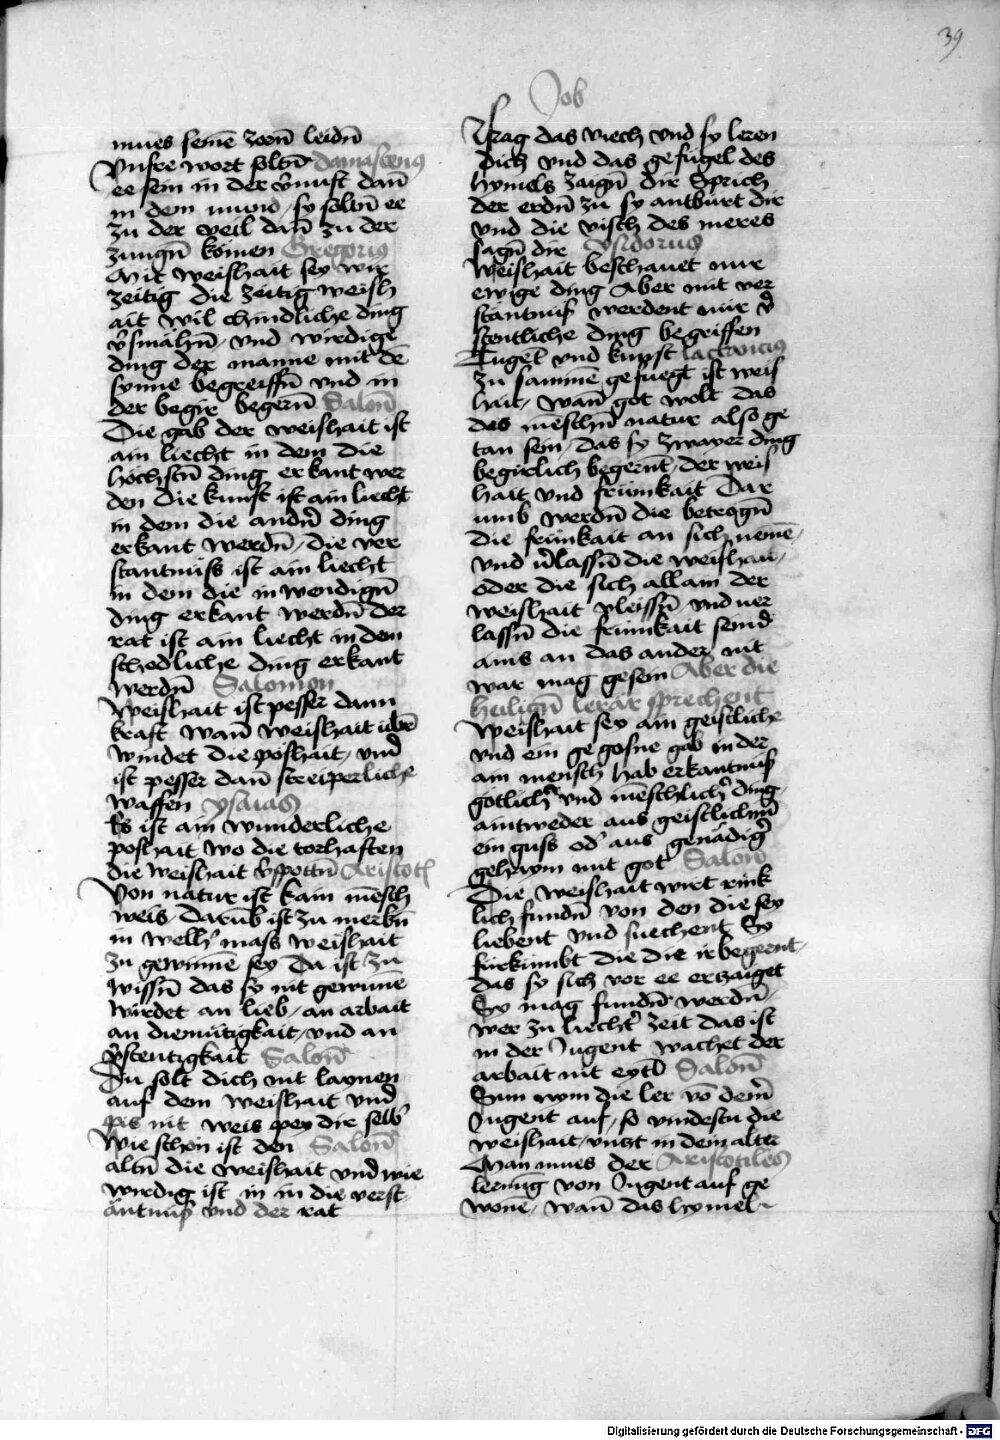 39
mues seinē zorn̄ leidn̄
Vnsre wort soltn̄ damascenus
ee sein in der v̄nuft dan̄
in dem mund / sy soltn̄ ee
zu der veil dan̄ zu der
zungn̄ kōmen Gregorius
Mit weishait sey wir
zeitig die zeitig weish
ait wil chindliche ding
v̄smähn̄ vnd wirdige
ding der manne mit dē
synne begreiffn̄ vnd in
der begir begern̄ Salon̄
Die gab der weishait ist
ain liecht in dem die
höchstn̄ ding erkant wer
den die kunst ist ain liecht
in dem die andn̄ ding
erkant werdn̄ / die ver
stantnüss ist ain liecht
in dem die inwendign̄
ding erkant werdn̄ der
rat ist ain liecht in dem
schedliche ding erkant
werdn̄ Salomon
Weishait ist pesser dann
kraft wan̄ weishait übē
windet die poshait / vnd
ist pesser dan̄ streiperliche
waffen ysaias
Es ist ain wunderliche
poshait wo die torhaften
die weishait v̄spottn̄ Aristotl
Von natur ist kain mēsch
weis / darūb ist zu merkn̄
in welh' mass weishait
zu gewinnē sey Da ist zu
wissn̄ das sy nit gewunnē
wirdet an lieb / an arbait
an diemütigkait / vnd an
v̄stentigkait Salon̄
Du solt dich nit laynen
auf dem weishait vnd
pis nit weis pey dir selb'
Wie schön ist den Salon̄
altn̄ die weishait vnd wie
wirdig ist in in die verst
äntnüss vnd der rat
Job
Frag das viech vnd sy leren
dich vnd das gefügel des
hymels zaign̄ dir Sprich
der erdn̄ zu sy antburt dir
vnd die visch des meres
sagn̄ dir ysidorus
Weishait beschauet nur
ewige ding Aber mit ver
stantnüss werdent nür v̄
stentliche ding begriffen
Tugent vnd kunst lactancius
zu sammē gefuegt ist weis
hait / wan̄ got wolt das
des mēschn̄ natur also ge
tan sein / das sy zwayer ding
begirlich begernt / der weis
hait vnd frümkait Dar
umb werdn̄ die betrogn̄
die frümkait an sich nemē /
vnd v̄lassn̄ die weishait /
oder die sich allain der
weishait vleissn̄ vnd ver
lassn̄ die frümkait seind
ains an das ander nit
war mag gesein Aber die
heilign̄ lerär sprechent
Weishait sey ain geistliche
vnd ein gegosne gab in der
ain mensch hab erkantnüss
götlich' vnd mēschlich' ding /
aintweder aus geistlichm̄
einguss od' aus genädig'
gehaym mit got Salon̄
Die weishait wirt rink
lich fundn̄ von den die sey
liebent vnd suechent Sy
fürkümbt die die ir begernt /
das sy sich vor ee erzaiget
Sy mag fundn̄ werdn̄ /
wer zu liecht' zeit das ist
in der Jugent wachet der
arbait nit eytl Salon̄
Sun nym die ler vō dein'
Jugent auf / so vindestu die
weishait / vntz in dein alter
Man mues der Aristotiles
lernūg von Jugent auf ge
wonē / wan̄ das hymel
Digitalisierung gefördert durch die Deutsche Forschungsgemeinschaft - DFG